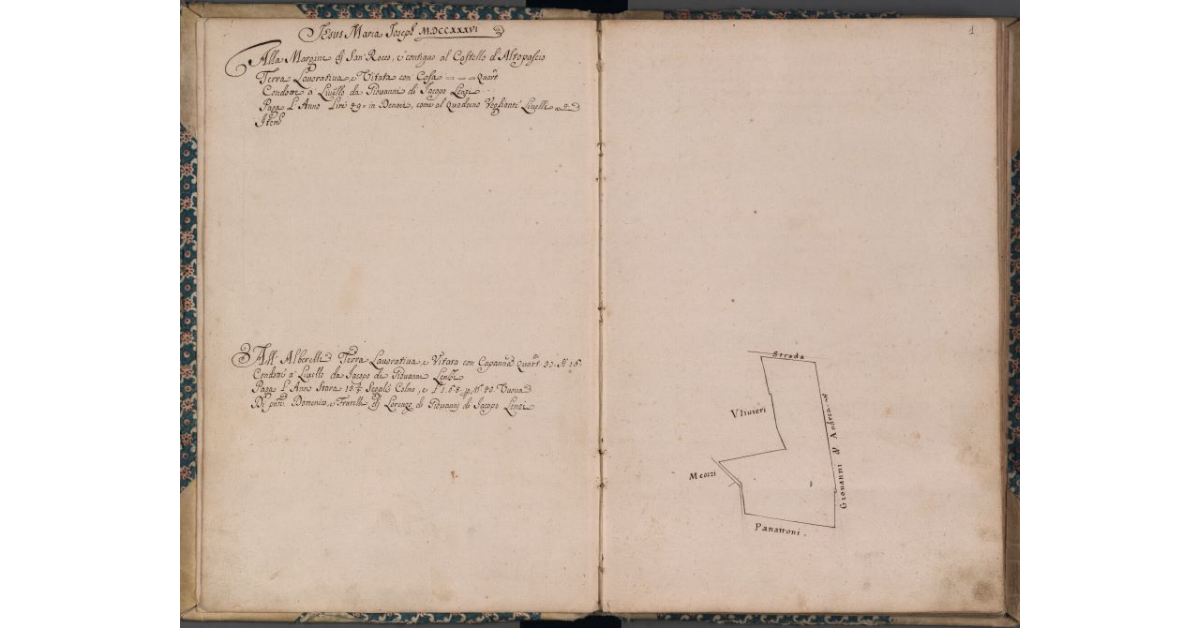 Jesus Maria Joseph MDCCXXXVI
Alla Margine di San Rocco, e contiguo al Castello d'Altopascio
Terra Lauorativa, e Vitata con Casa — — — Quart
Condotte a Liuello da Giovanni di Jacopo Lenzi
Paga L'Anno Lire 49 in Denari, come al Quaderno Vegliante Livelli
Item
All' Alberelli Terra Lauorativa, e Vitata con Capanna Quart
Condotte a Liuello da Jacopo di Giovanni Lenzi
Paga L'Anno Stara Segale Colme, e
Domenico, e Fratelli di Lorenzo di Giovanni di Jacopo Lenzi
1
Strada
Vliuieri
Giouanni di Andrea
Meozzi
Panattoni.